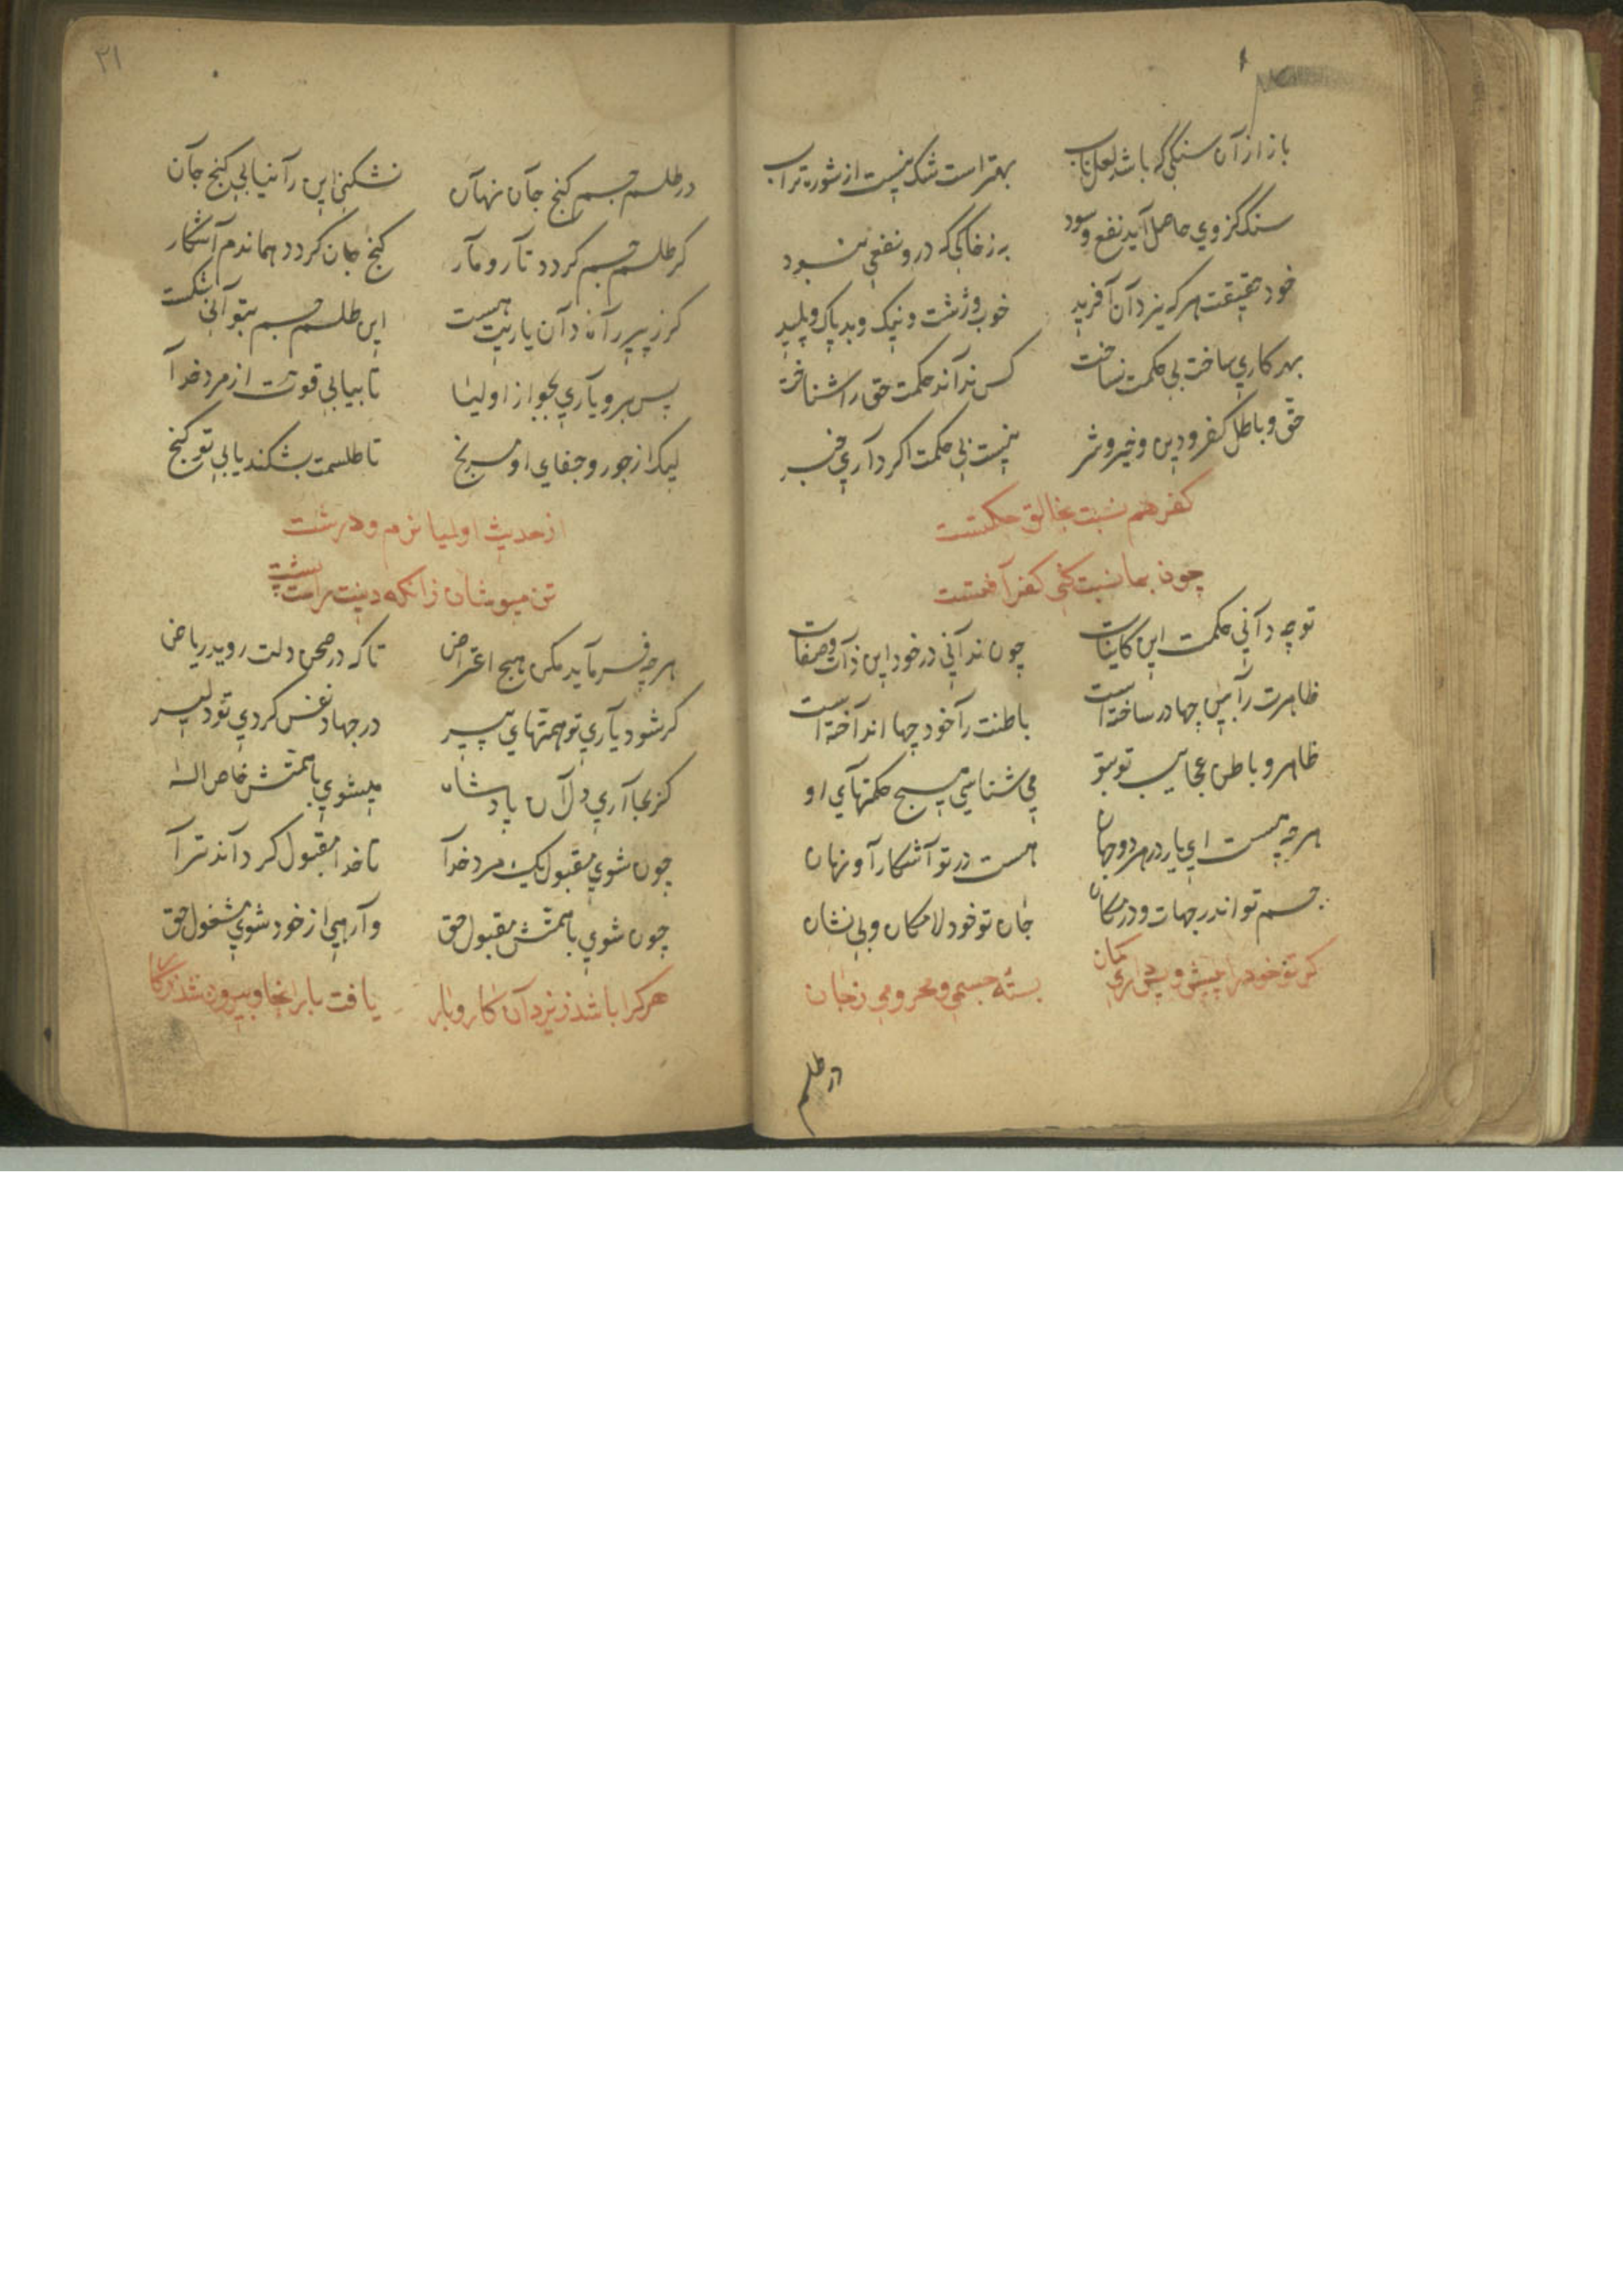 باز از آن سنگی که باشد لعل ناب بهتر است شک نیست از شوره تراب
سنک کز وی حاصل آید نفع و سود به ز خاکی که درو نفعی نبود
خود حقیقت هر که یزدان آفرید خوب و زشت و نیک و بد پاک و پلید
بهر کاری ساخت بی حکمت نساخت کس نداند حکمت حق را شناخت
حق و باطل کفر و دین و خیر و شر نیست بی حکمت اکر داری خبر
کفر هم نسبت بخالق حکمتست
چون بما نسبت کنی کفر آفتست
تو چه دانی حکمت این کاینات چون ندانی در خود این ذات و صفات
ظاهرت را بین چها در ساخته است باطنت را خود چها انداخته است
ظاهر و باطن عجایب تو بتو می شناسی هیچ حکمتهای او
هر چه هست ای یار در هر دو جهان هست در تو آشکارا و نهان
جسم تو اندر جهات و در مکان جان تو خود لامکان و بی نشان
کر تو خود را پیش و پس داری کمان بسته جسمی و محرومی ز جان
در طلسم
۳۱
در طلسم جسم کنج جان نهان نشکنی این را نیابی کنج جان
کر طلسم جسم کردد تار و مار کنج جان کردد هماندم آشکار
کرز پیر راه دان یاریت هست این طلسم جسم بتوانی شکست
پس برو یاری بجو از اولیا تا بیابی قوت از مرد خدا
لیک از جور و جفای او مرنج تا طلسمت بشکند یابی تو کنج
از حدیث اولیا نرم و درشت
تن مپوشان زانکه دینت راست پشت
هر چه فرماید مکن هیچ اعتراض تا که در صحن دلت روید ریاض
کر شود یاری تو همتهای پیر در جهاد نفس کردی تو دلیر
کر بجا آری دل آن پادشاه میشوی با همتش خاص اله
چون شوی مقبول یک مرد خدا تا خدا مقبول کرداند ترا
چون شوی با همتش مقبول حق وارهی از خود شوی مشغول حق
هر کرا باشد ز یزدان کار و بار یافت بار انجا و بیرون شد ز کار